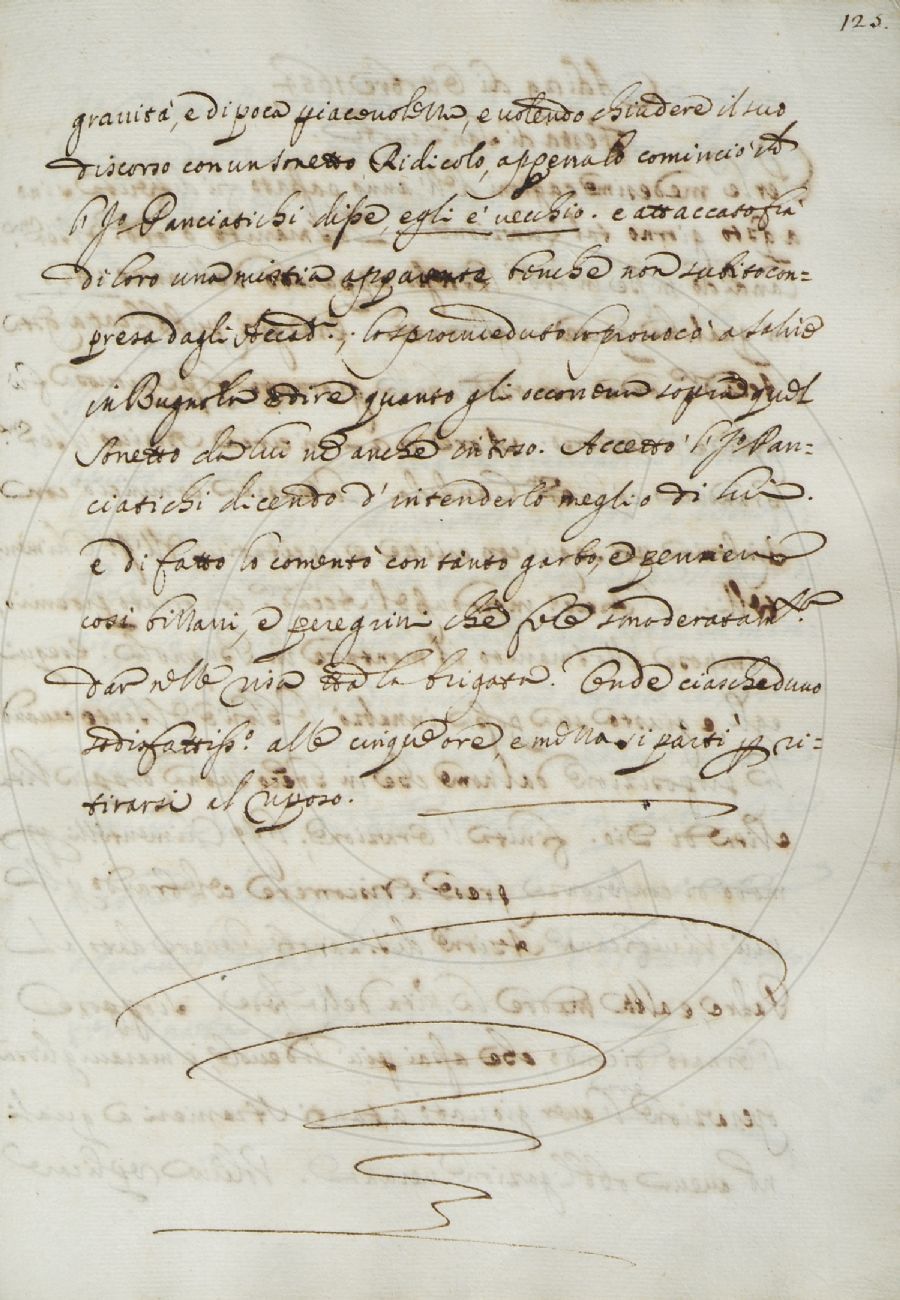 125.
gravità, e di poca piacevolezza, e volendo chiudere il suo
discorso con un sonetto Ridicolo, appena lo cominciò
Panciatichi disse, egli è vecchio. e attaccatosi fra
di loro una mistia apparente, benche non subito con=
presa dagli Accad.ci, lo sprovveduto lo provocò a salire
in Bugnola e dire quanto gli occorreva sopra quel
Sonetto da lui ne anche inteso. Accettò Pan=
ciatichi dicendo d'intenderlo meglio di lui.
e di fatto lo comentò con tanto garbo, e pensieri
così bizzarri, e peregrini che fece smoderatam.te
dar nelle risa tta la brigata. Onde ciascheduno
sodisfattiss.o alle cinque ore, e mezza si partì p ri=
tirarsi al riposo.